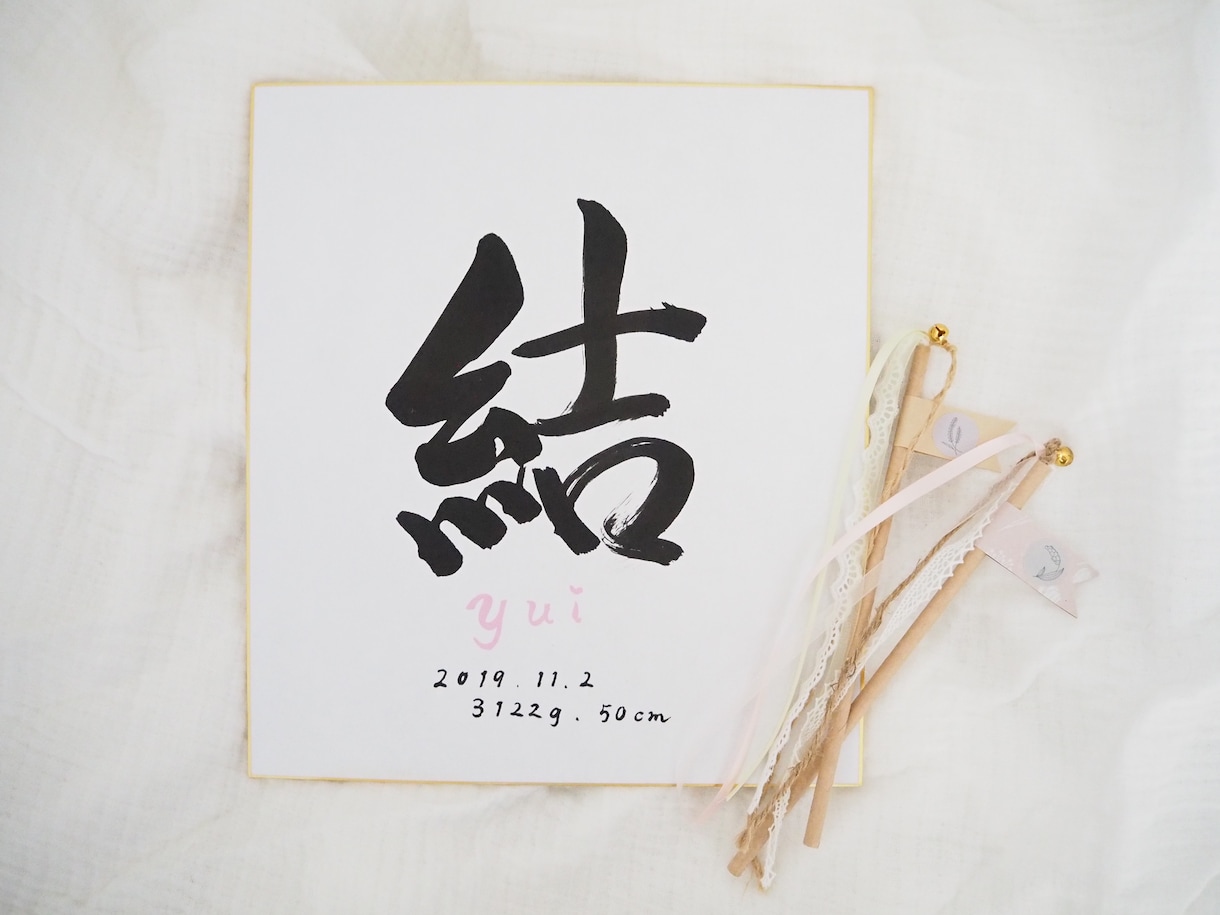 結
yui
2019.11.2
3122g.50cm